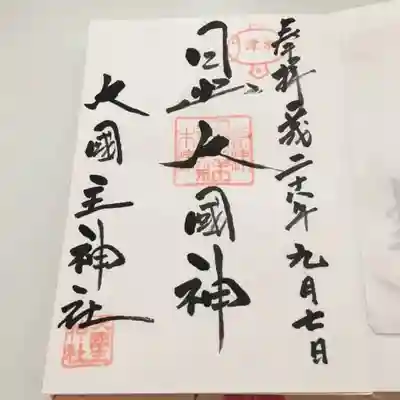 奉拝 平成二十六年九月七日
日出大國神
大國主神社